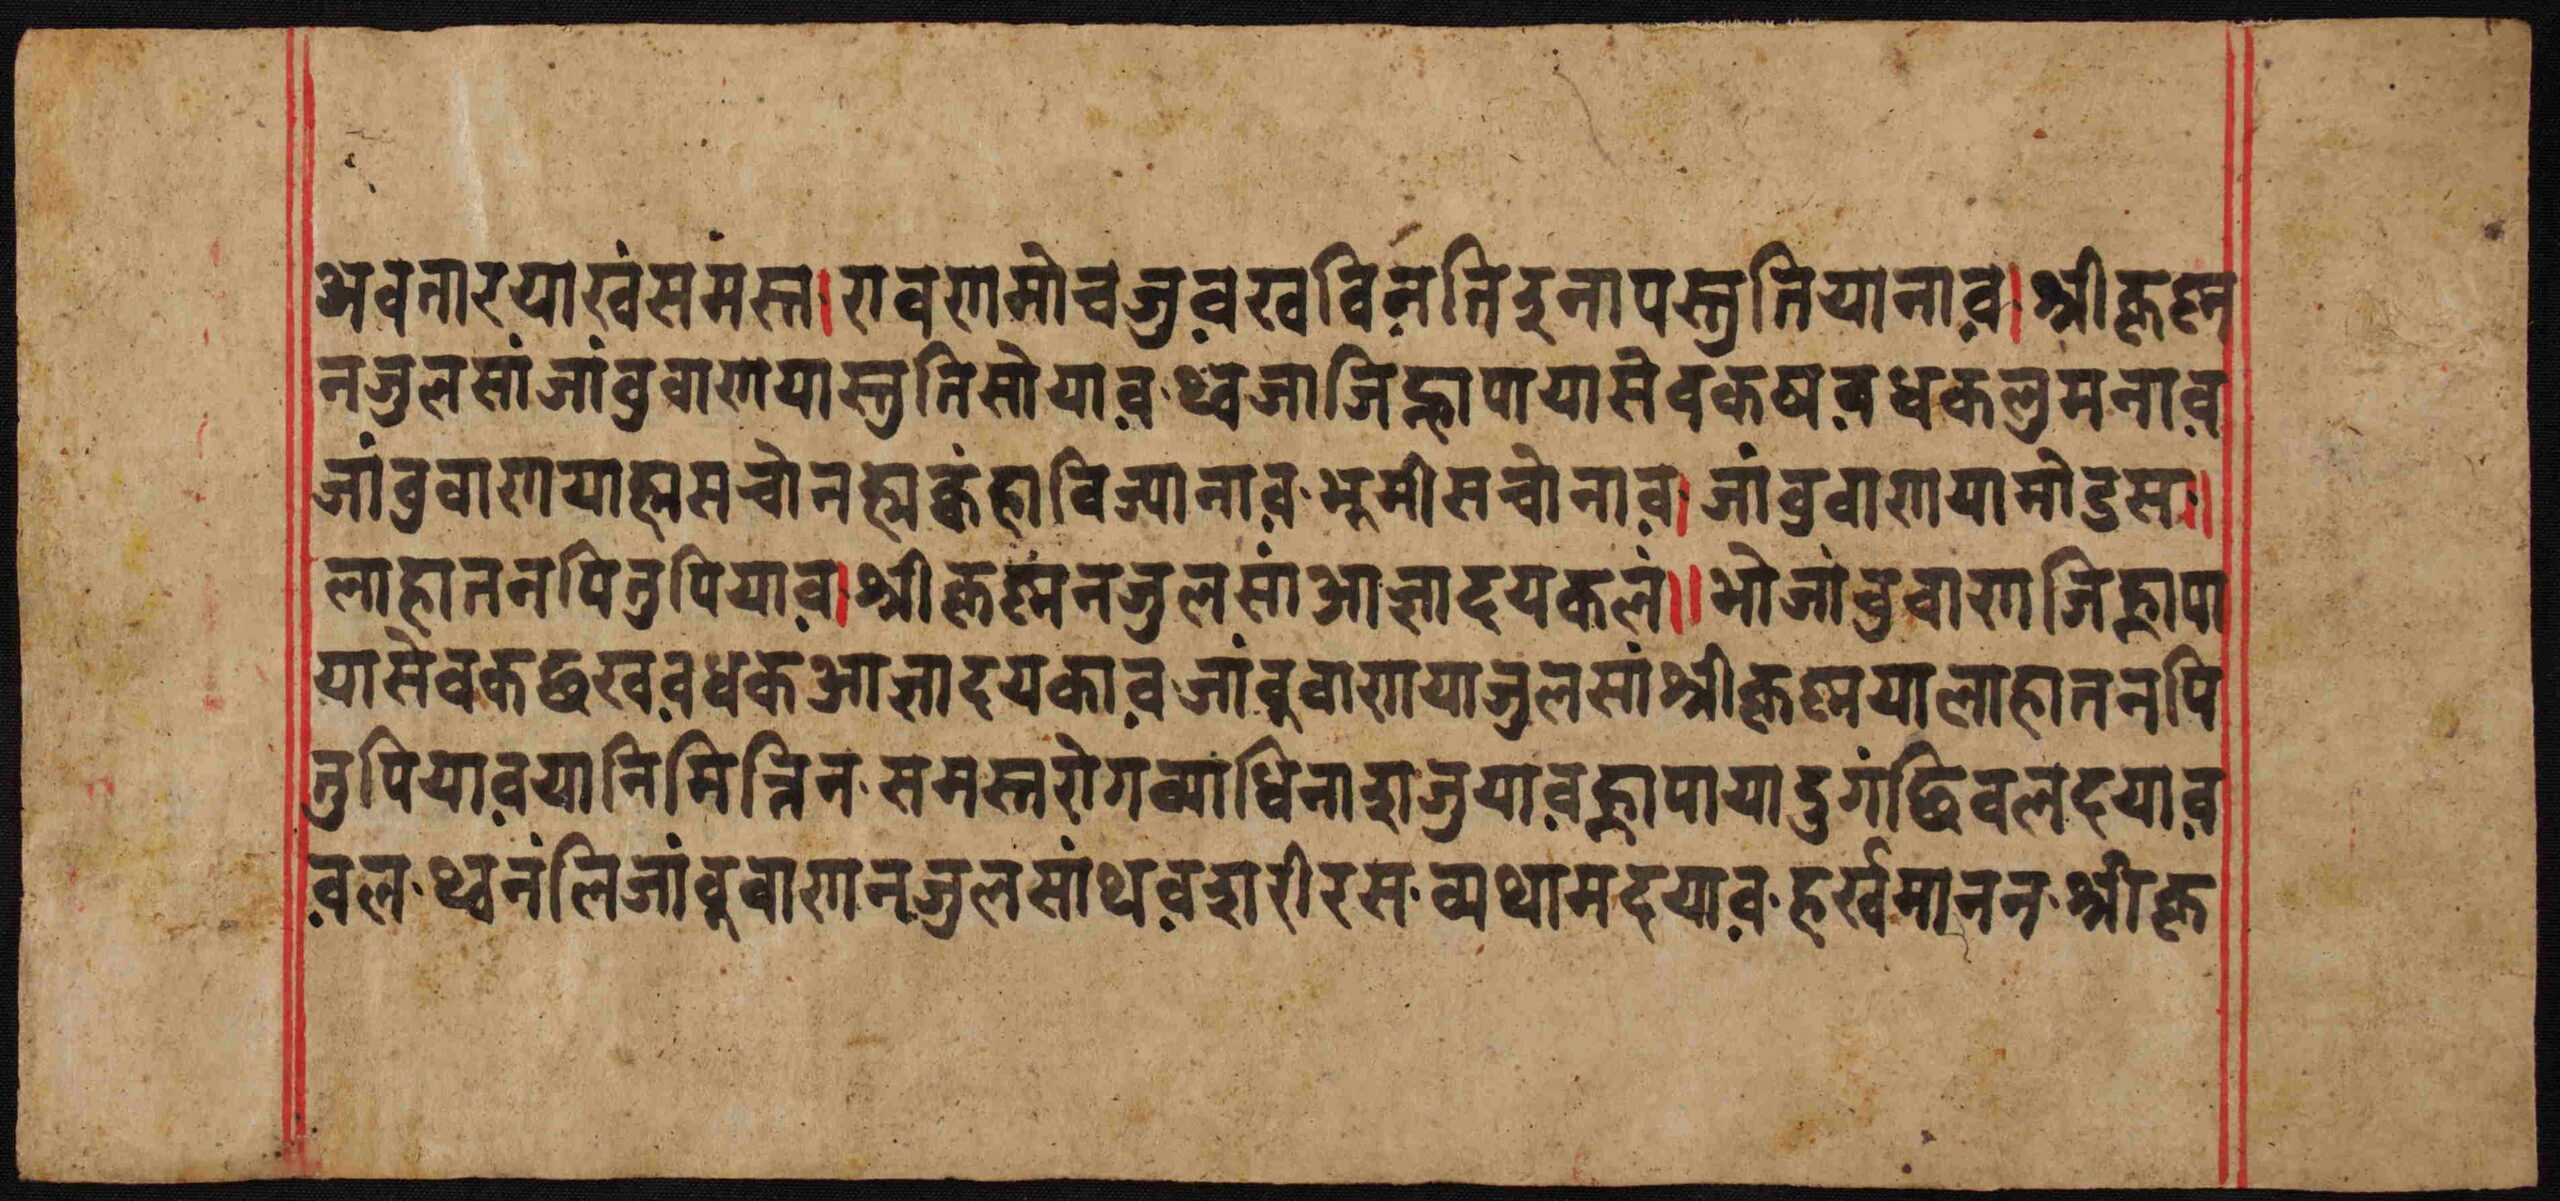 अवतारयाखंसमंस्त।रावणमोचजुव़खवविऩतिइनापस्तुतियानाव़।श्रीकृष्ण
नजुलसांजांवुवाणयास्तुतिसोयाव़·थ्वजाजिह्लापायासेवकषव़धकलुमनाव़
जांवुवाणयाह्मसचोनह्मक्वंहाविज्यानाव़·भूमीसचोनाव़।जांवुवाणयामोडस·॥
लाहातनपितुपियाव़।श्रीकृष्णंनजुलसांआज्ञादयकलं॥भोजांवुवाणजिह्लापा
यासेवकछखव़धकआज्ञादयकाव़जांवुवाणयाजुलसांश्रीकृष्णयालाहातनपि
तुपियाव़यानिमित्तिन·समस्तरोगव्याधिनाशजुयाव़ह्लापायादुगंछिवलदयाव़
व़ल·थ्वनंलिजांवुवाणनजुलसांथव़शरीरस·व्यथामदयाव़·हर्खमानन·श्रीकृ